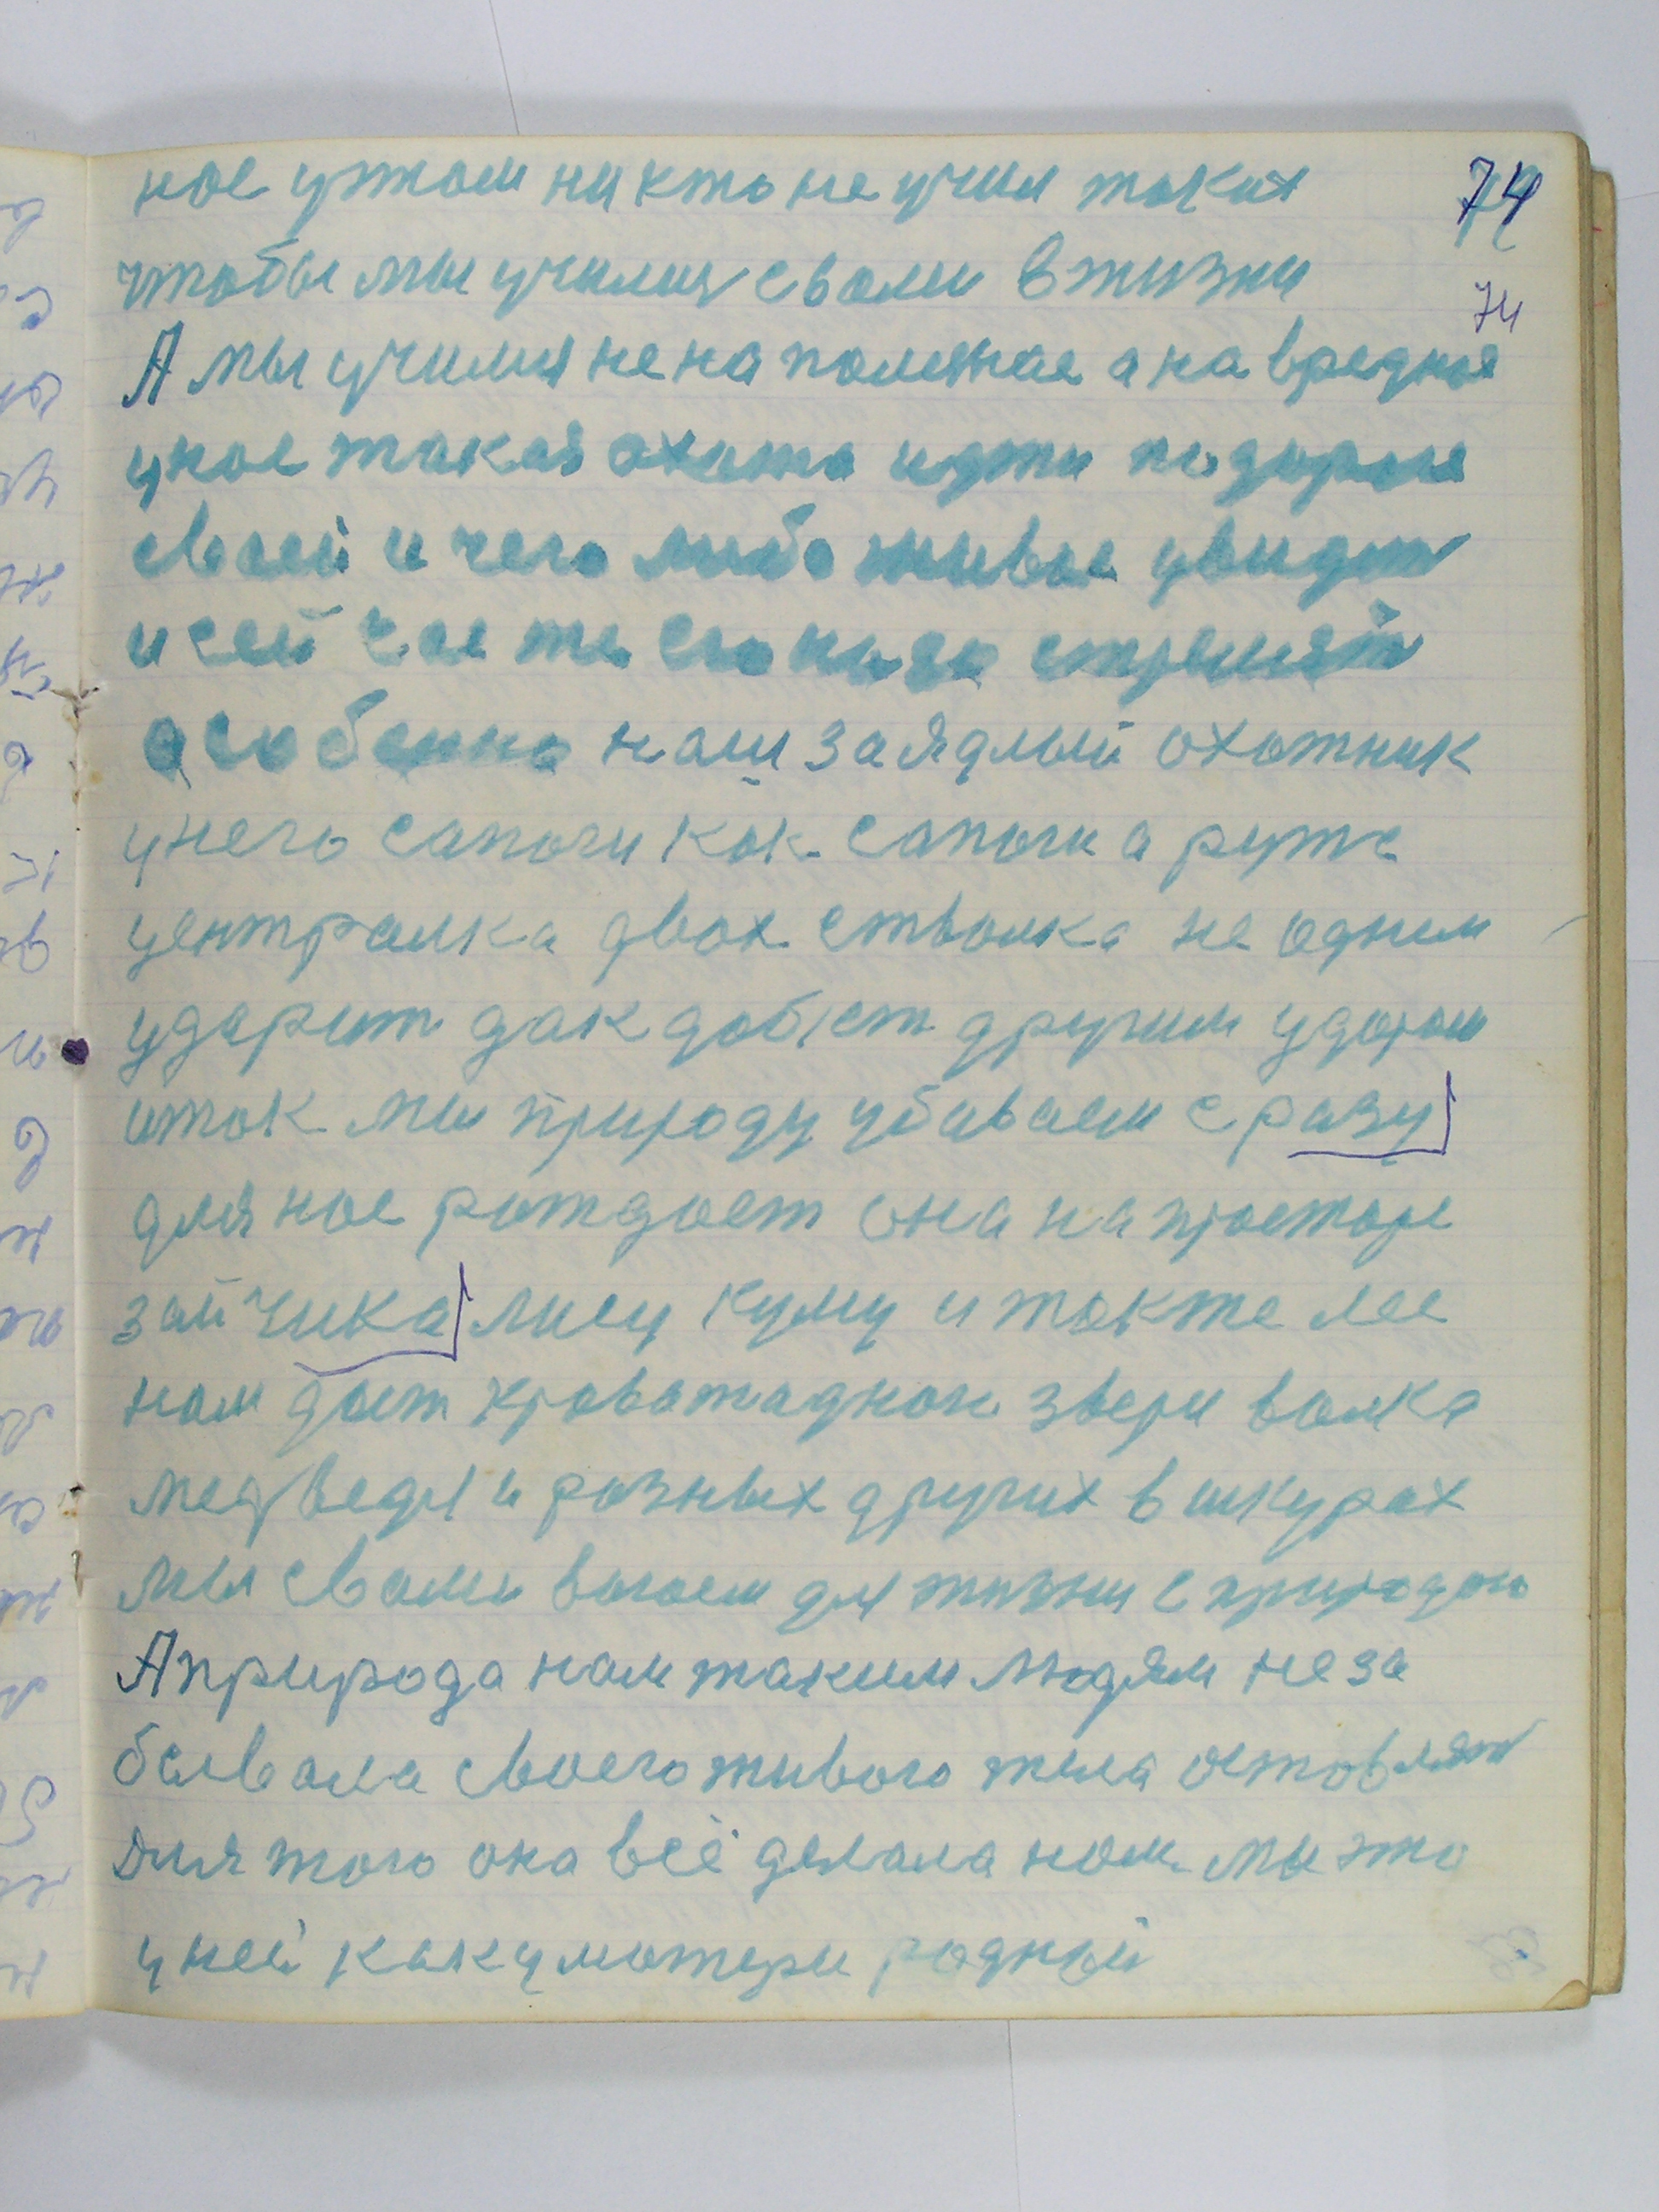 74
74
нас у том ни кто не учил таких
чтобы мы училися с вами в жизни
А мы учимся не на полезнае а на вредное
у нас такая охота идти по дороге
своей и чего либо живое увидет
и сей час же его надо стрелят
особенно наш заядлый охотник
у него сапоги как сапоги а ружё
централка двох стволка не одним
ударит дак добёт другим ударом
и так мы природу убиваем сразу
для нас рождает она на просторе
зайчика лису куму и также лес
нам дает кроважадных звери волка
медведя и разных других в шкурах
мы с вами воюем для жизни с природою
А природа нам таким людям не за
бывала своего живого тела оставлят
Для того она всё делала нам мы это
у ней как у матери родной